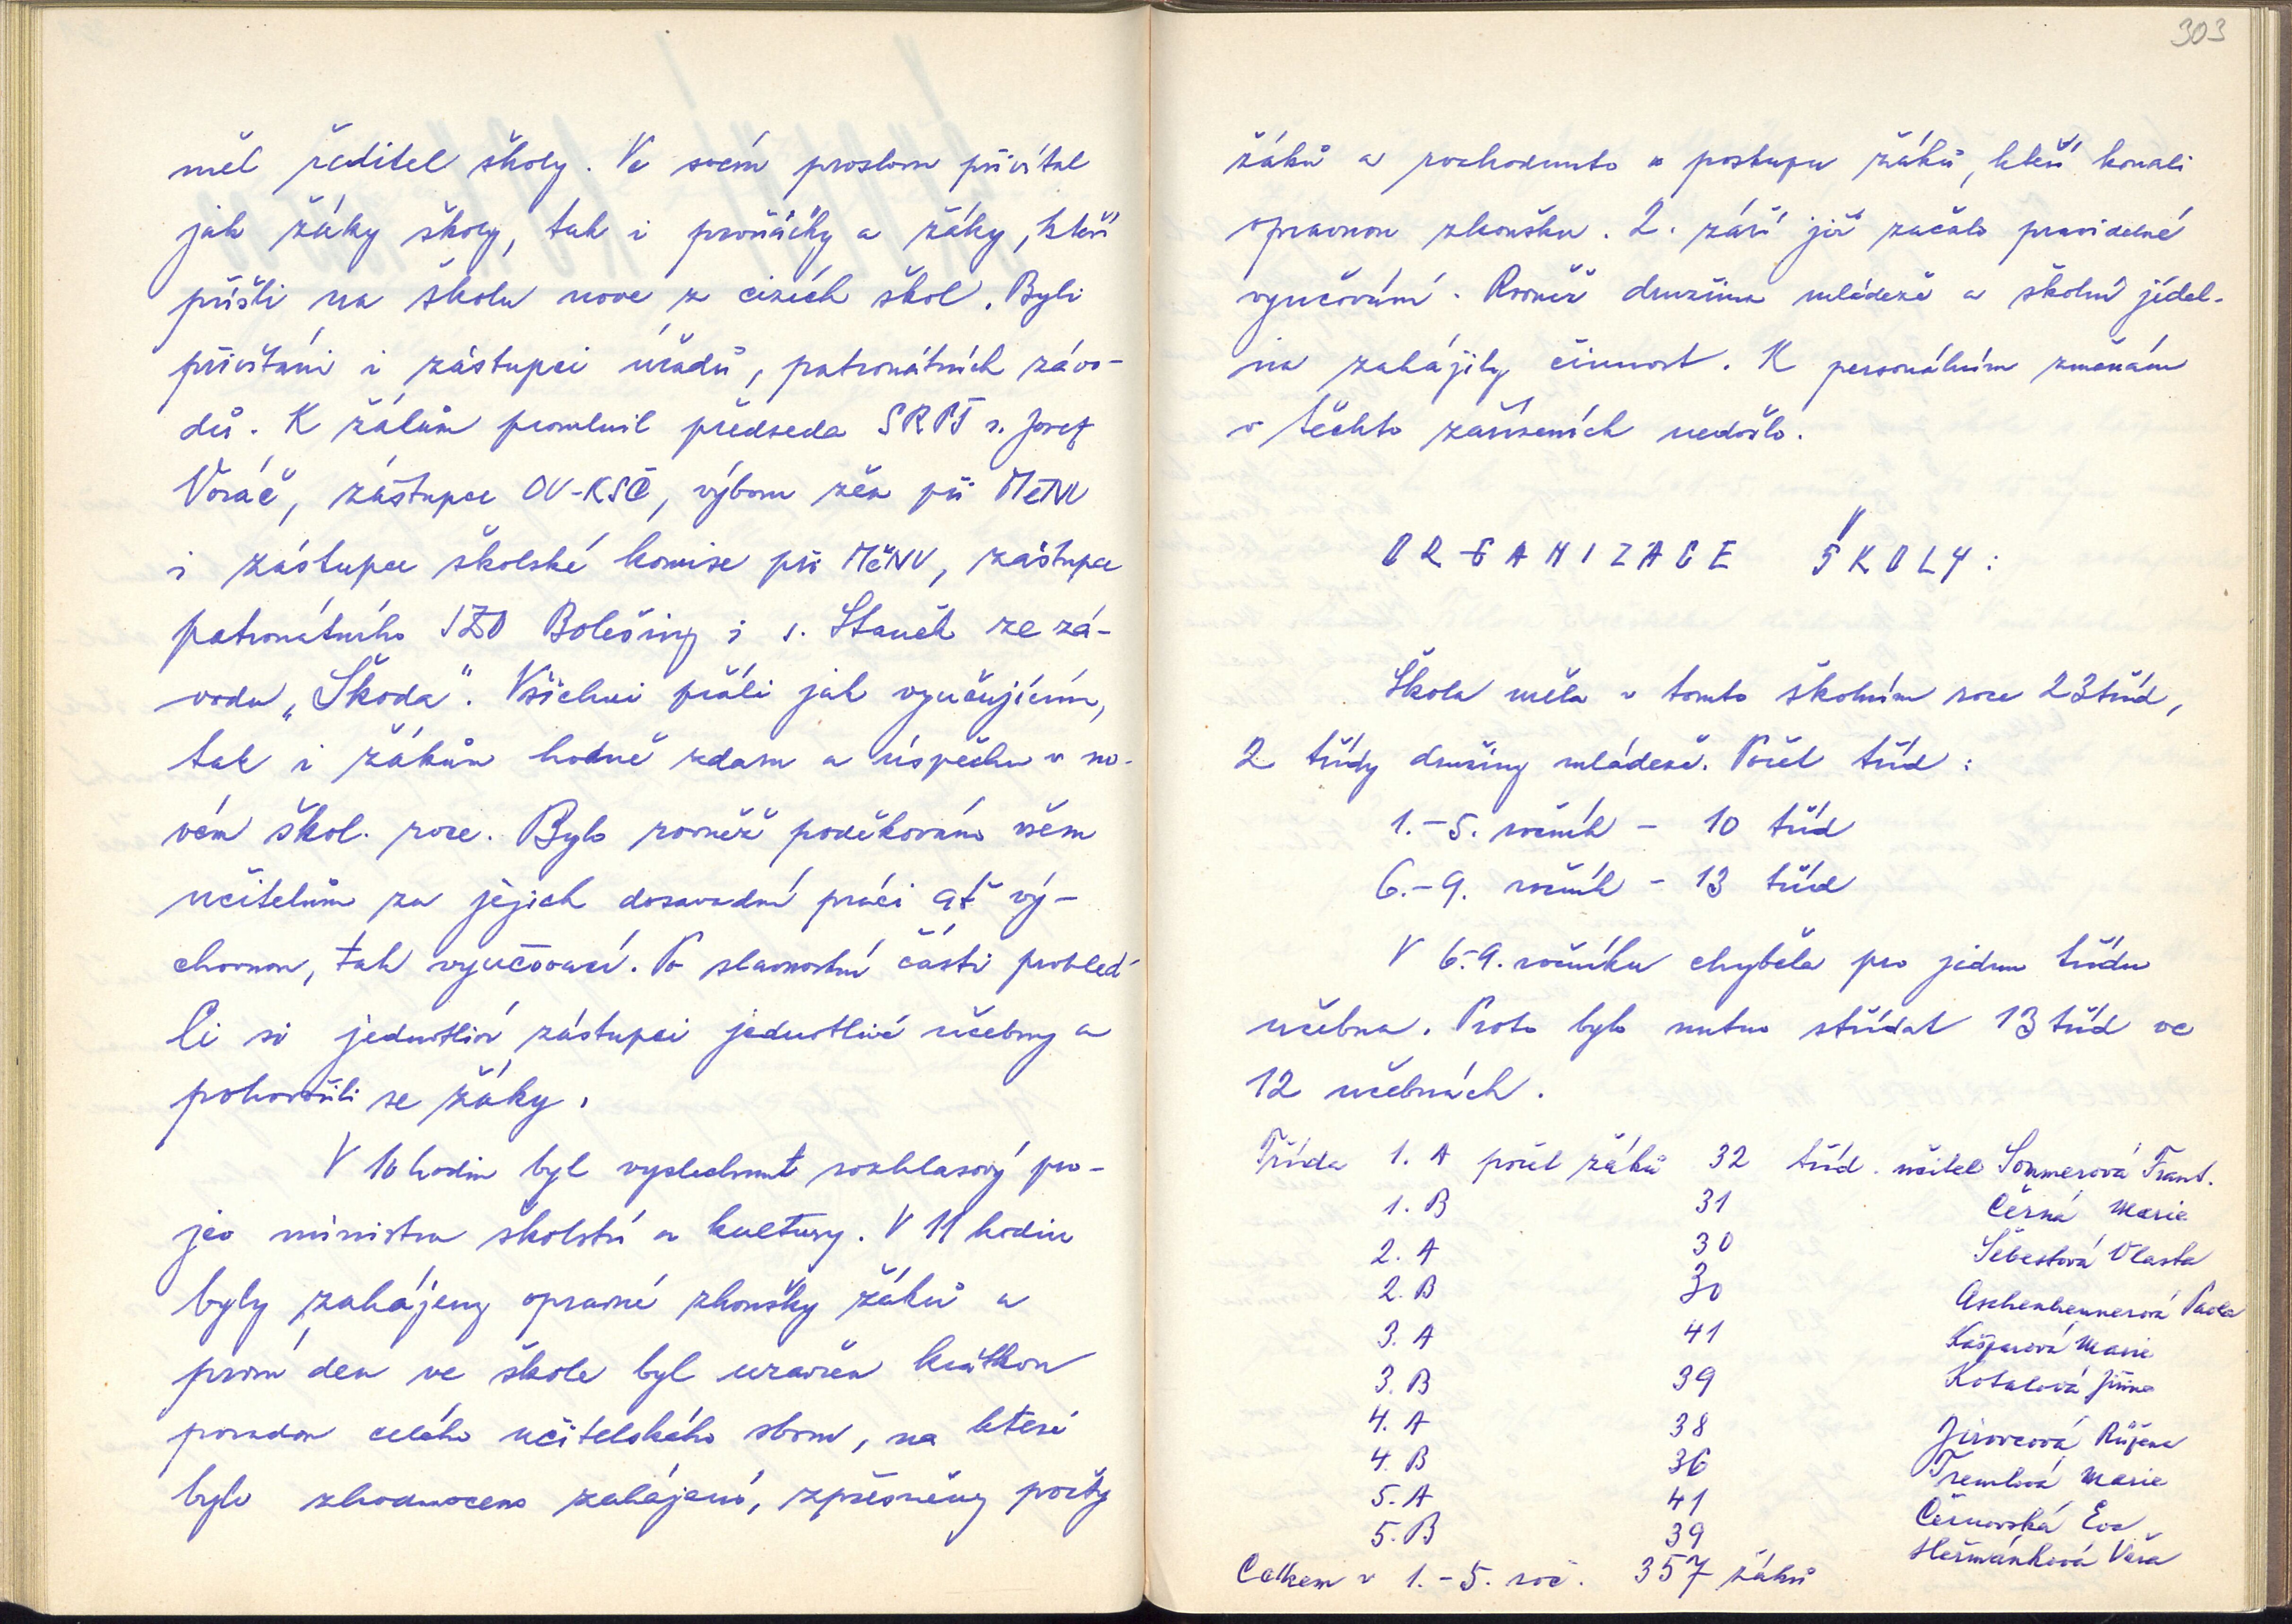 měl ředitel školy. Ve svém proslovu přivítal
jak žáky školy, tak i prvňáčky a žáky, kteří
přišli na školu nově z cizích škol. Byli
přivítáni i zástupci úřadů, patronátních závo-
dů. K žákům promluvil předseda SRPŠ s. Josef
Voráč, zástupce OV-KSČ, výboru žen při MěNV
i zástupce školské komise při MěNV, zástupce
patronátního JZD Bolešiny i s. Staněk ze zá-
vodu „Škoda". Všichni přáli jak vyučujícím,
tak i žákům hodně zdaru a úspěchu v no-
vém škol. roce. Bylo rovněž poděkováno všem
učitelům za jejich dosavadní práci ať vý-
chovnou, tak vyučovací. Po slavnostní části prohléd-
li si jednotliví zástupci jednotlivé učebny a
pohovořili se žáky.
V 10 hodin byl vyslechnut rozhlasový pro-
jev ministra školství a kultury. V 11 hodin
byly zahájeny opravné zkoušky žáků a
první den ve škole byl uzavřen krátkou
poradou celého učitelského sboru, na které
bylo zhodnoceno zahájení, zpřesněny počty
303
žáků a rozhodnuto o postupu žáků, kteří konali
opravnou zkoušku. 2. září již začalo pravidelné
vyučování. Rovněž družina mládeže a školní jídel-
na zahájily činnost. K personálním změnám
v těchto zařízeních nedošlo.
ORGANIZACE ŠKOLY:
Škola měla v tomto školním roce 23 tříd,
2 třídy družiny mládeže. Počet tříd:
1.-5. ročník - 10 tříd
6.-9. ročník - 13 tříd
V 6.-9. ročníku chyběla pro jednu třídu
učebna. Proto bylo nutno střídat 13 tříd ve
12 učebnách.
Třída 1. A počet žáků 32 tříd. učitel Sommerová Frant.
1. B 31 Černá Marie
2. A 30 Šebestová Vlasta
2. B 30 Aschenbrennerová Pavla
3. A 41 Kašparová Marie
3. B 39 Kotalová Jiřina
4. A 38 Jírovcová Růžena
4. B 36 Tremlová Marie
5. A 41 Černovská Eva
5. B 39 Heřmánková Věra
Celkem v 1.-5. roč. 357 žáků